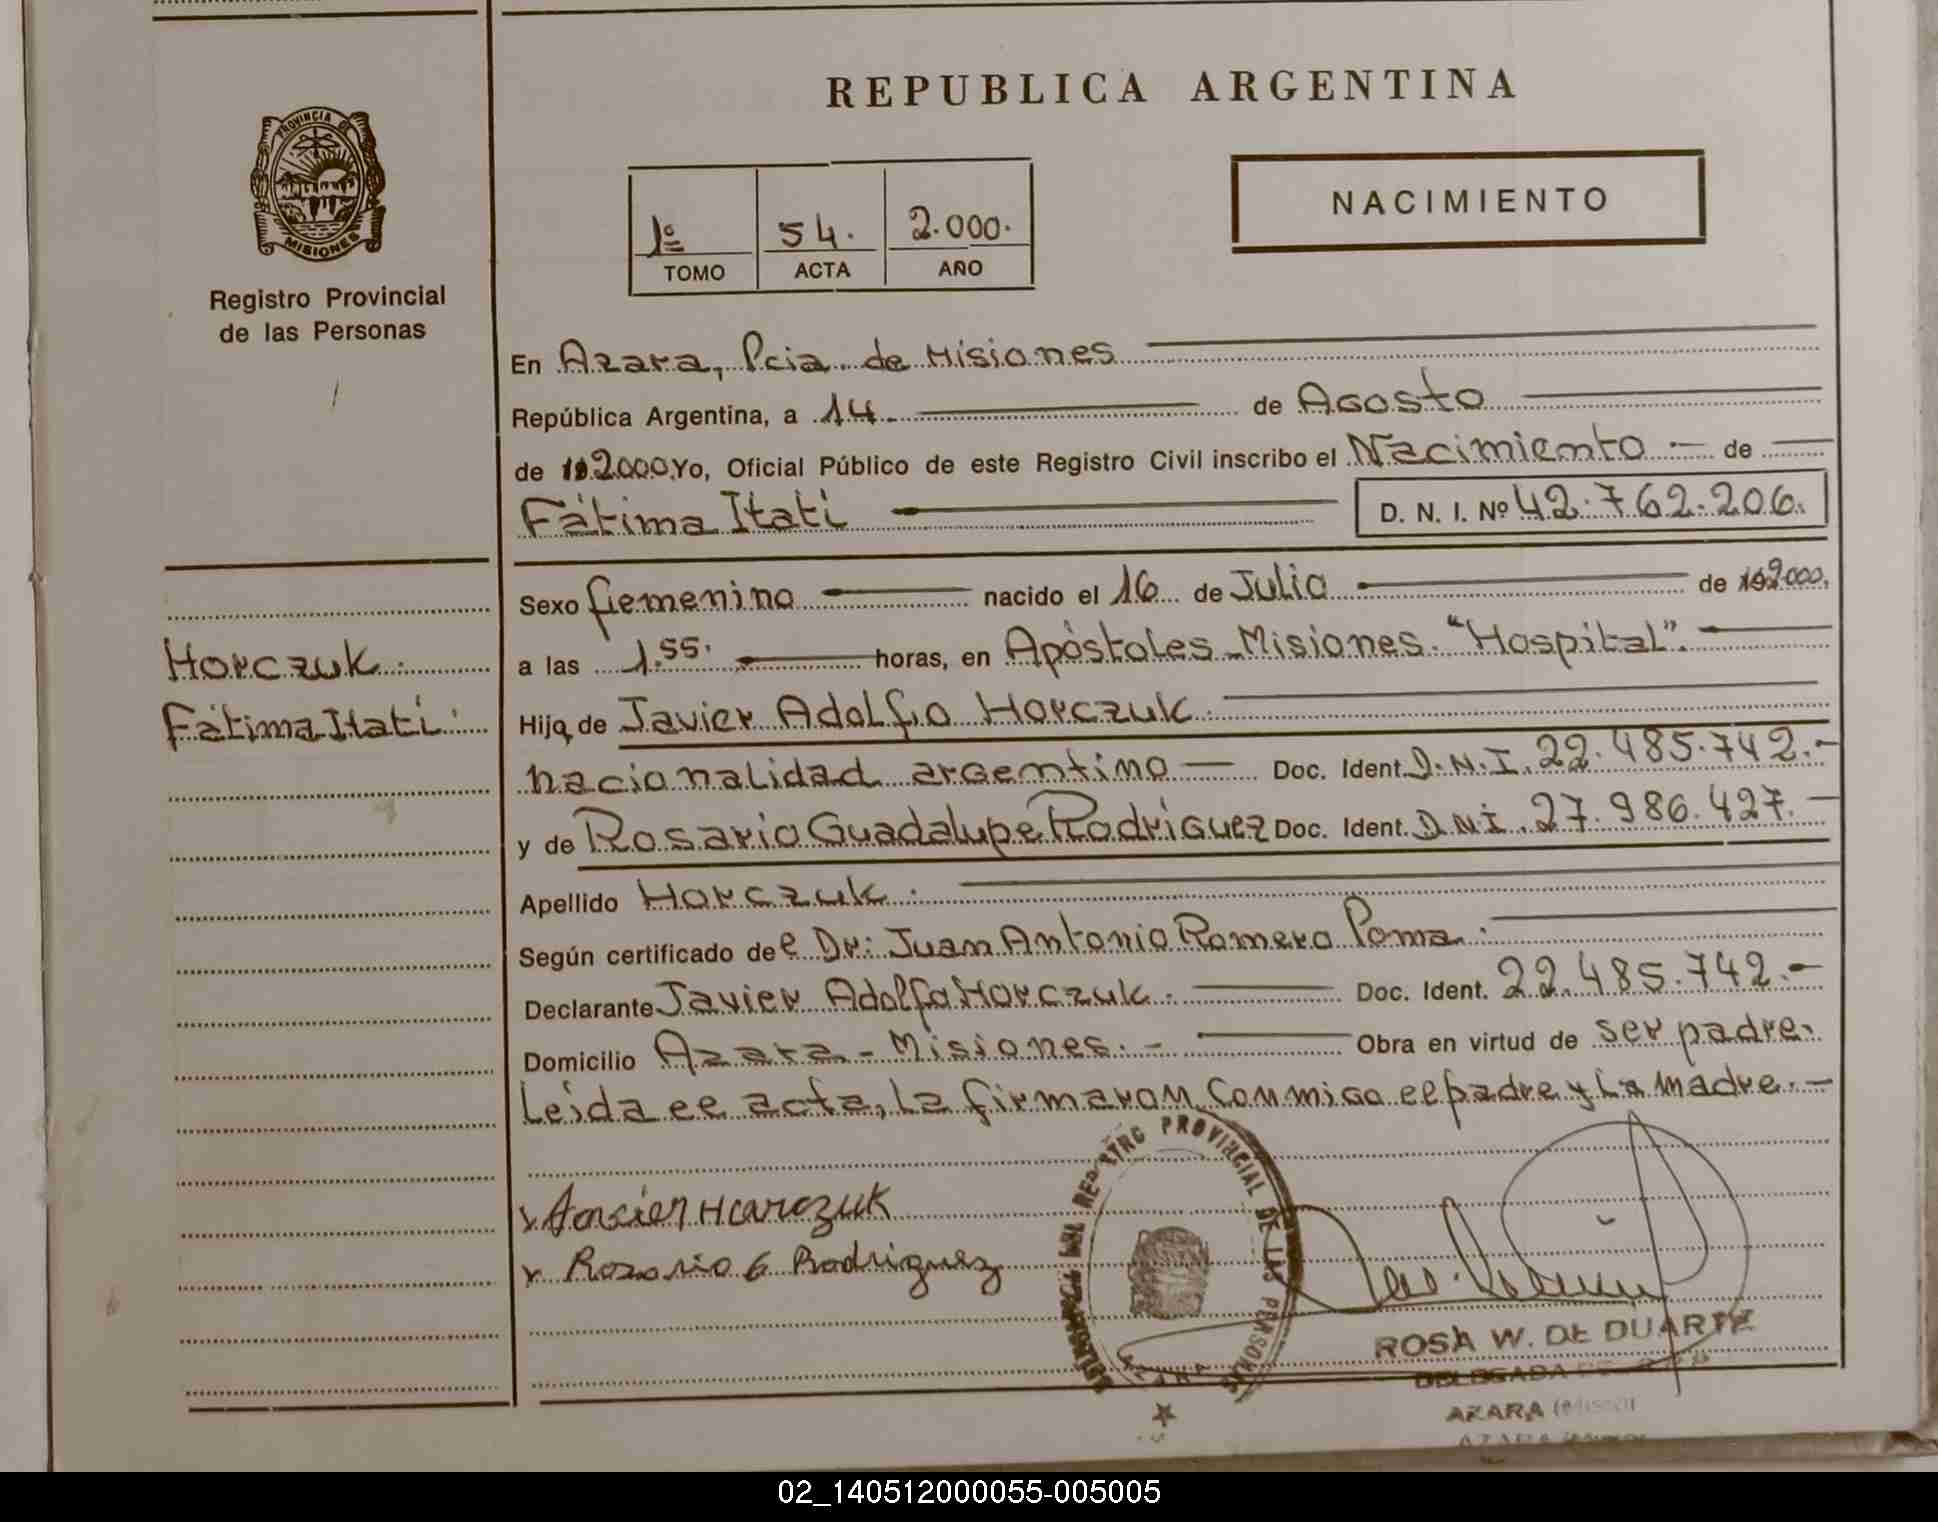 REPUBLICA ARGENTINA
PROVINCIA DE
MISIONES
Registro Provincial
de las Personas
1º 54. 2.000.
TOMO ACTA AÑO
NACIMIENTO
En Azara, Pcia. de Misiones
República Argentina, a 14. de Agosto
de 2.000. Yo, Oficial Público de este Registro Civil inscribo el Nacimiento de
Fátima Itatí D. N. I. Nº 42.762.206.
Sexo femenino nacido el 16 de Julio de 2.000.
a las 1.55. horas, en Apóstoles - Misiones. "Hospital".
Horczuk.
Fátima Itatí.
Hija de Javier Adolfo Horczuk.
nacionalidad argentino Doc. Ident. D.N.I. 22.485.742.-
y de Rosario Guadalupe Rodríguez Doc. Ident. D.N.I. 27.986.427.-
Apellido Horczuk.
Según certificado del Dr: Juan Antonio Romero Poma.
Declarante Javier Adolfo Horczuk. Doc. Ident. 22.485.742.-
Domicilio Azara - Misiones. - Obra en virtud de ser padre.
Leída el acta, la firmaron conmigo el padre y la madre.-
Javier Horczuk
Rosario G Rodriguez
REGISTRO PROVINCIAL DE LAS PERSONAS
ROSA W. DE DUARTE
DELEGADA DE
AZARA (Misiones)
02_140512000055-005005